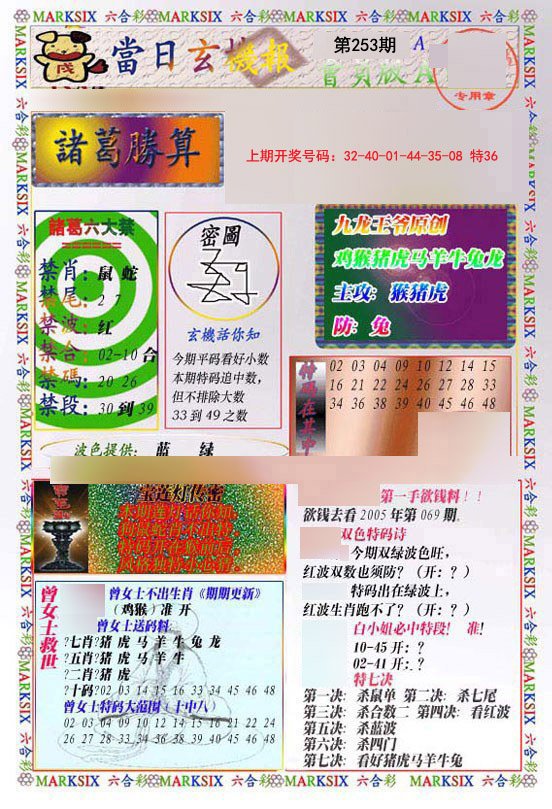 MARKSIX 六合彩 MARKSIX 六合彩 MARKSIX 六合彩 MARKSIX 六合彩
當日玄機报
第253期
A
专用章
諸葛勝算
上期开奖号码：32-40-01-44-35-08 特36
諸葛六大禁
禁肖：鼠 蛇
禁尾：2 7
禁波：红
禁合：02-10 合
禁碼：20 26
禁段：30 到 39
密圖
玄機話你知
今期平码看好小数
本期特码追中数，
但不排除大数
33 到 49 之数
九龙王爷原创
鸡猴猪虎马羊牛兔龙
主攻：猴猪虎
防：兔
特码在其中
02 03 04 09 10 12 14 15
16 21 22 24 26 27 28 33
34 36 38 39 40 45 46 48
波色提供： 蓝 绿
宝莲灯传密
第一手欲钱料！！
欲钱去看 2005 年第 069 期.
双色特码诗
今期双绿波色旺，
红波双数也须防？（开：？）
特码出在绿波上，
红波生肖跑不了？（开：？）
白小姐必中特段！ 准!
10-45 开：？
02-41 开：？
特七决
第一决： 杀鼠单 第二决： 杀七尾
第三决： 杀合数二 第四决： 看红波
第五决： 杀蓝波
第六决： 杀四门
第七决： 看好猪虎马羊牛兔
曾女士救世
曾女士不出生肖《期期更新》
（鸡猴）准 开
曾女士送码料
?七肖?猪 虎 马 羊 牛 兔 龙
?五肖?猪 虎 马 羊 牛
?二肖?猪 虎
?十码?02 03 14 15 16 33 34 45 46 48
曾女士特码大范围（十中八）
02 03 04 09 10 12 14 15 16 21 22 24
26 27 28 33 34 36 38 39 40 45 46 48
MARKSIX 六合彩 MARKSIX 六合彩 MARKSIX 六合彩 MARKSIX 六合彩